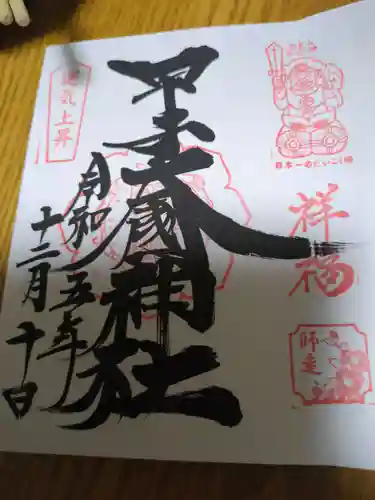 日本一のだいこく様
祥福
師走
甲子大國神社
運気上昇
令和五年
十二月十日